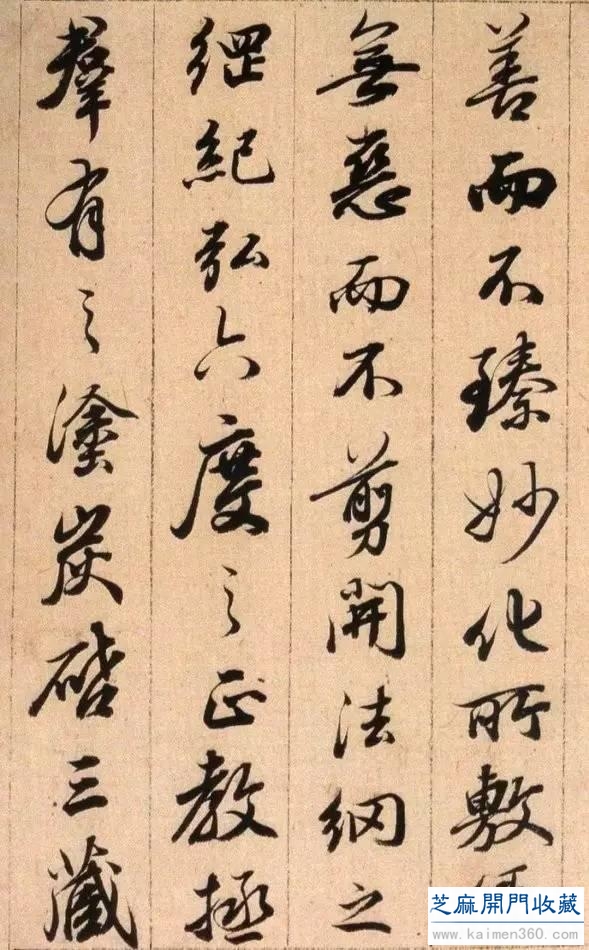 善而不臻妙化所敷
無惡而不剪開法網之
綱紀弘六度之正教拯
羣有之塗炭啓三藏
芝麻開門收藏
www.kaimen360.com